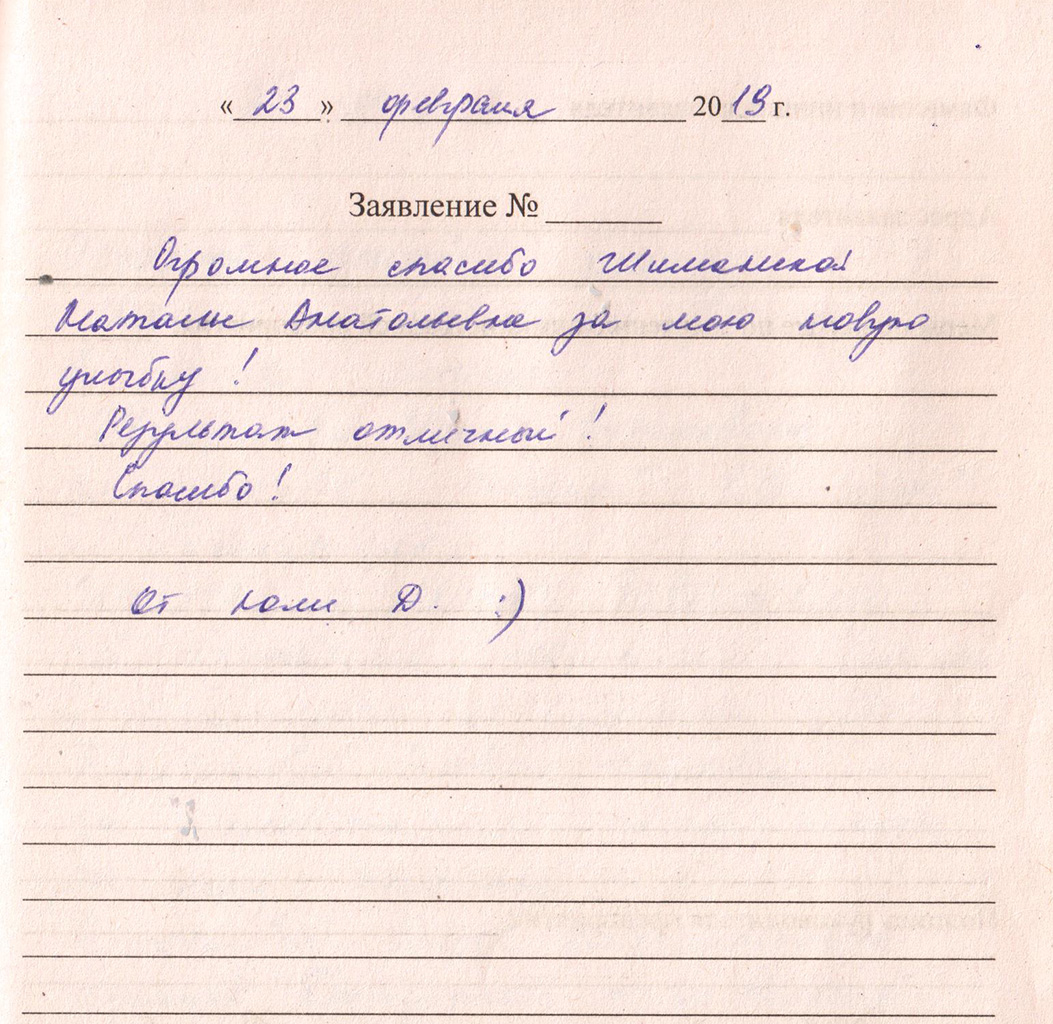 « 23 » февраля 2019 г.
Заявление № ______
Огромное спасибо Шиманской
Наталье Анатольевне за мою новую
улыбку !
Результат отличный !
Спасибо !
От Коли Д. :)